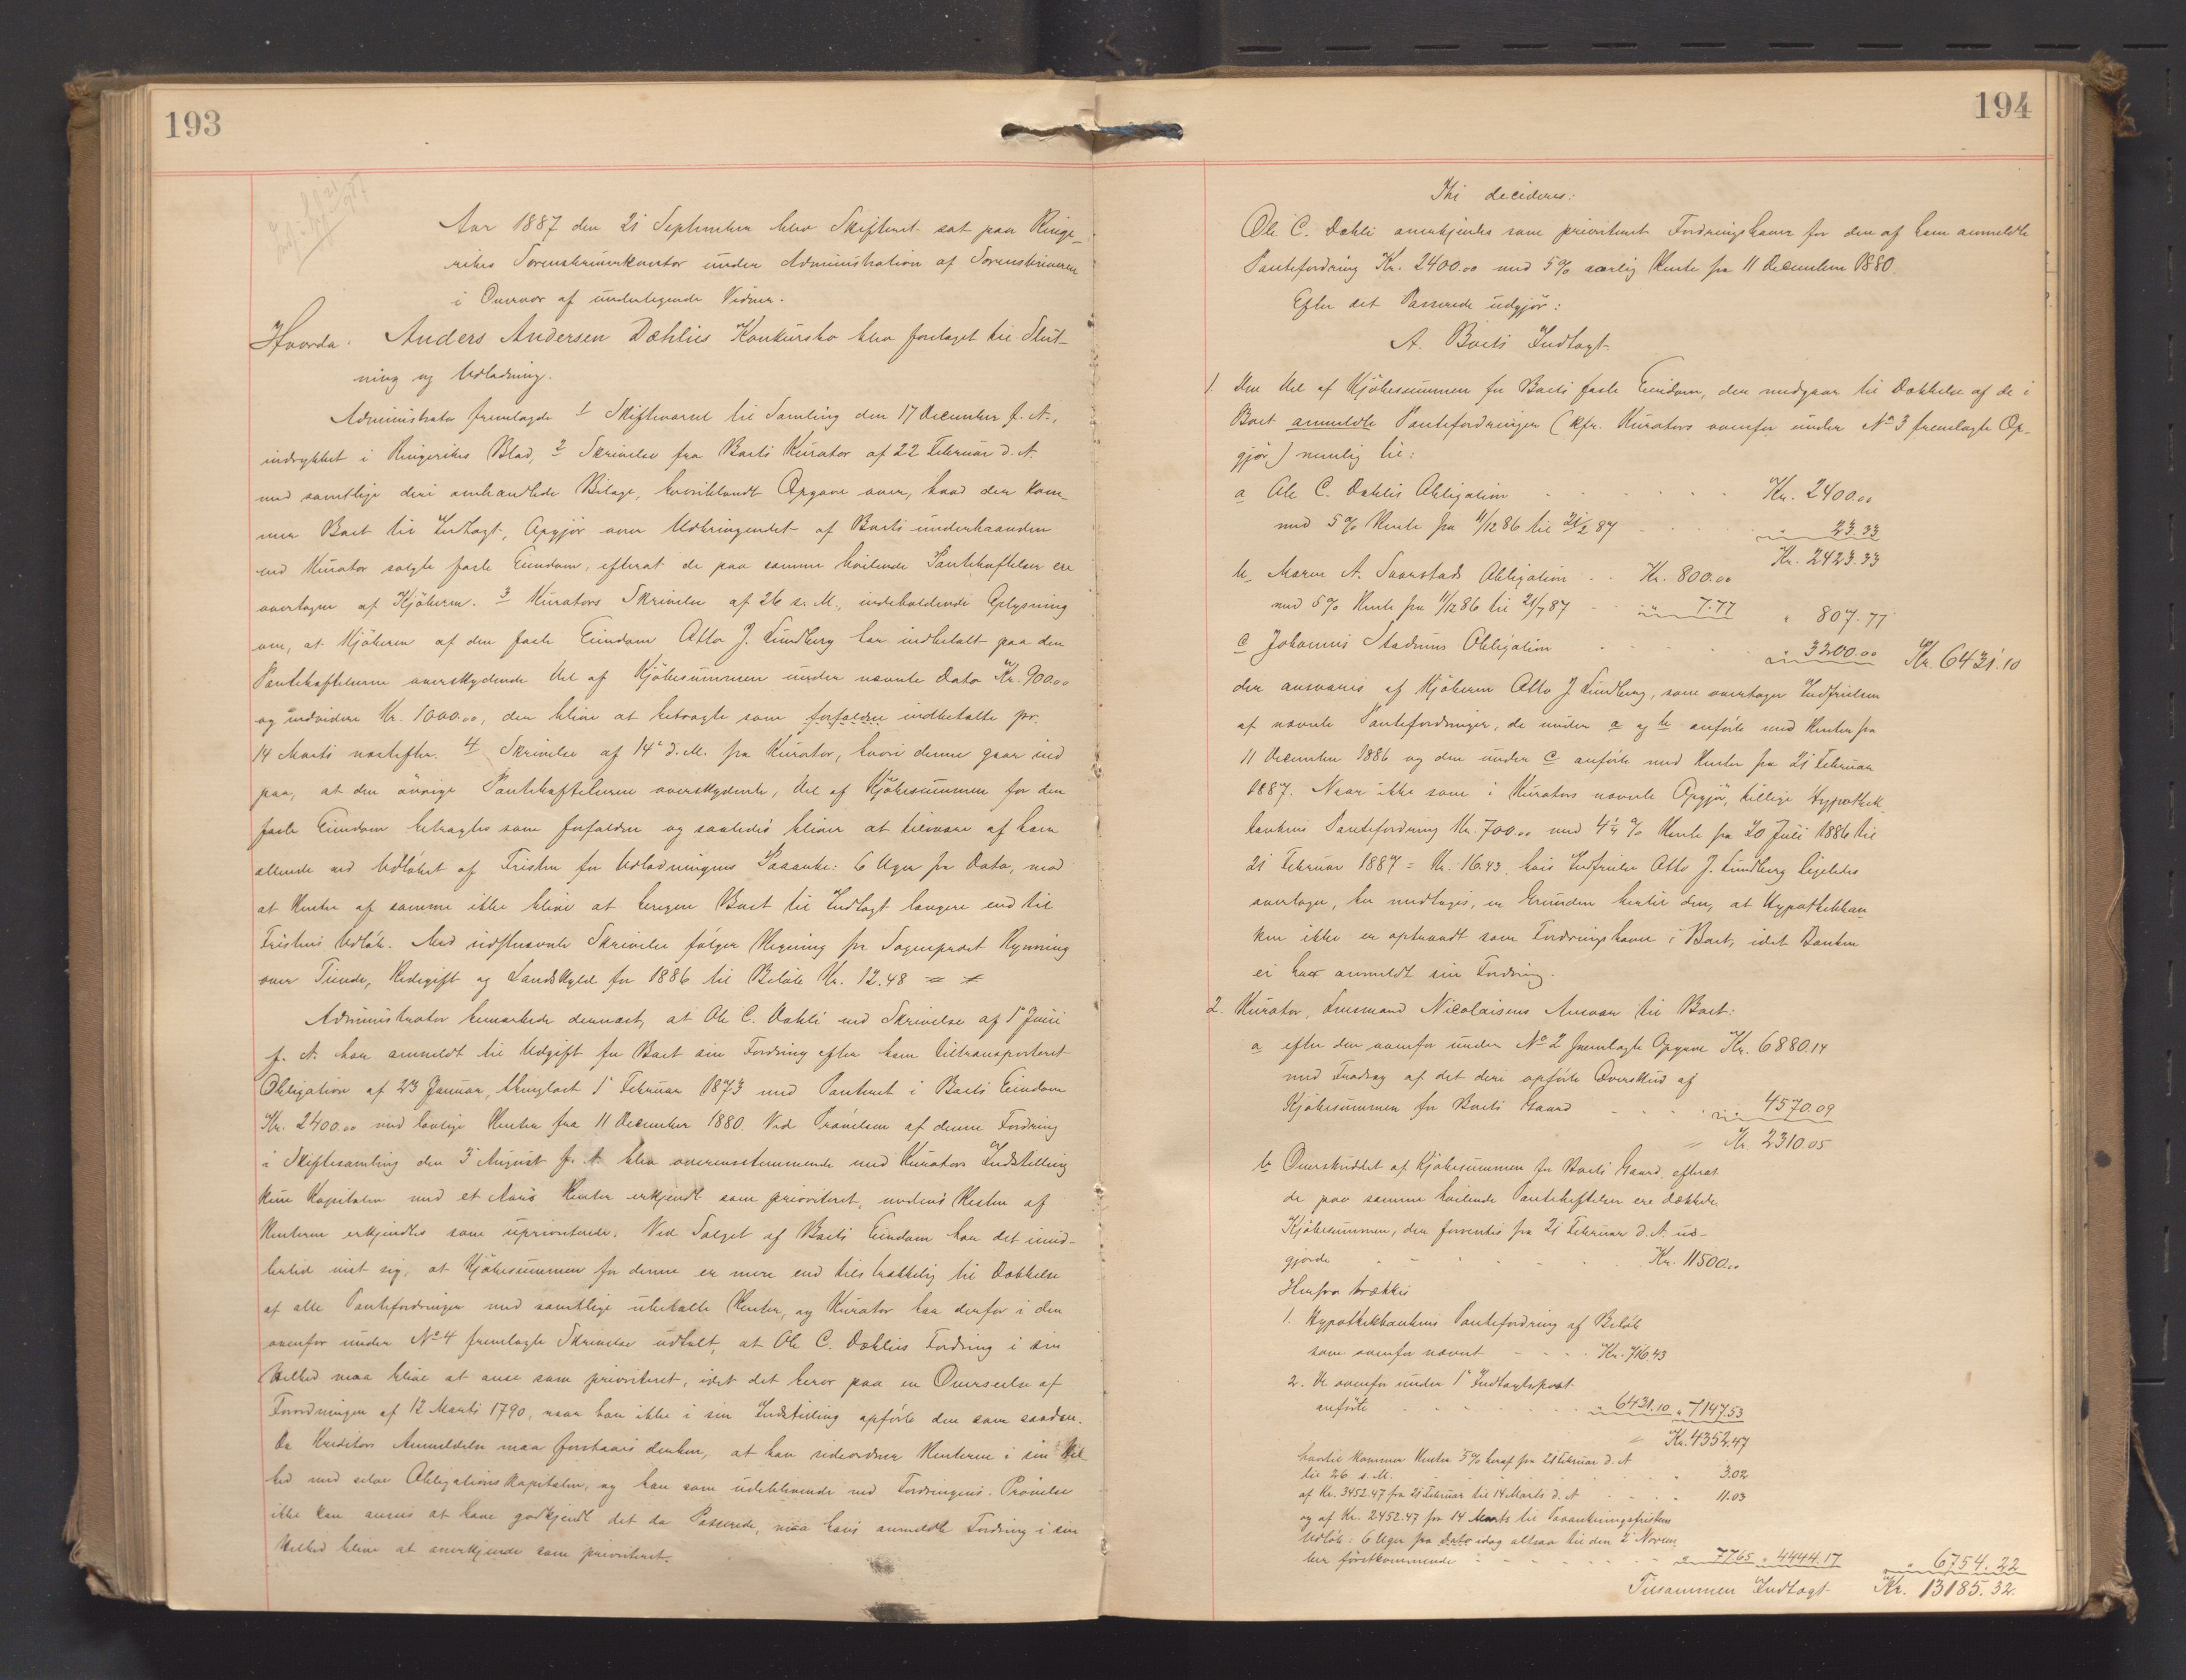 193
Aar 1887 den 21 September blev Skifteret sat paa Ringe-
rikes Sorenskriverkontor under Administration af Sorenskriveren
i Overvær af undertegnede Vidner.
Hvorda. Anders Andersen Dæhlies Konkursbo blev foretaget til Slut-
ning og Udlodning.
Administrator fremlagde 1 Skiftevarsel til Samling den 17 December f. A.,
indrykket i Ringerikes Blad, 2 Skrivelse fra Boets Kurator af 22 Februar d. A.
med samtlige deri omhandlede Bilage, hvoriblandt Opgave over, hvad der kom-
mer Boet til Indtægt, Opgjør over Udbringendet af Boets underhaanden
ved Kurator solgte faste Eiendom, efterat de paa samme hvilende Pantehæftelser ere
overtagne af Kjøberen. 3 Kurators Skrivelse af 26 s. M., indeholdende Oplysning
om, at Kjøberen af den faste Eiendom Otto J. Lundberg har indbetalt paa den
Pantehæftelserne overskydende Del af Kjøbesummen under nævnte Dato Kr. 900.00
og endvidere Kr. 1000.00, der blive at betragte som forfaldne indbetalte pr.
14 Marts næstefter. 4 Skrivelse af 14 d. M. fra Kurator, hvori denne gaar ind
paa, at den øvrige Pantehæftelserne overskydende, Del af Kjøbesummen for den
faste Eiendom betragtes som forfalden og saaledes bliver at tilsvare af ham
allerede ved Udløbet af Fristen for Udlodningens Paaanke: 6 Uger fra Dato, mod
at Renter af samme ikke blive at beregne Boet til Indtægt længere end til
Fristens Udløb. Med sidstnævnte Skrivelse følger Regning fra Sogneprest Rynning
over Tiende, Redegift og Landskyld for 1886 til Beløb Kr. 12.48
Administrator bemærkede dernæst, at Ole C. Dæhli ved Skrivelse af 1 Juni
f. A. har anmeldt til Udgift for Boet sin Fordring efter ham tiltransporteret
Obligation af 23 Januar, thinglæst 1 Februar 1873 med Panteret i Boets Eiendom
Kr. 2400.00 med lovlige Renter fra 11 December 1880. Ved Prøvelsen af denne Fordring
i Skiftesamling den 3 August f. A. blev overensstemmende med Kurators Indstilling
kun Kapitalen med et Aars Renter erkjendt som prioriteret, medens Resten af
Renterne erkjendtes som uprioriterede. Ved Salget af Boets Eiendom har det imid-
lertid vist sig, at Kjøbesummen for denne er mere end tilstrækkelig til Dækkelse
af alle Pantefordringer med samtlige ubetalte Renter, og Kurator har derfor i den
ovenfor under No 4 fremlagte Skrivelse udtalt, at Ole C. Dæhlies Fordring i sin
Helhed maa blive at anse som prioriteret, idet det beror paa en Overseelse af
Forordningen af 12 Marts 1790, naar han ikke i sin Indstilling opførte den som saadan.
Da Kreditors Anmeldelse maa forstaaes derhen, at han sideordner Renterne i sin Hel-
hed med selve Obligationskapitalen, og han som udeblivende ved Fordringens Prøvelse
ikke kan ansees at have godkjendt det da Passerede, maa hans anmeldte Fordring i sin
Helhed blive at anerkjende som prioriteret.
194
Thi decideres:
Ole C. Dæhli anerkjendes som prioriteret Fordringshaver for den af ham anmeldte
Pantefordring Kr. 2400.00 med 5% aarlig Rente fra 11 December 1880.
Efter det Passerede udgjør:
A. Boets Indtægt
1. Den Del af Kjøbesummen for Boets faste Eiendom, der medgaar til Dækkelse af de i
Boet anmeldte Pantefordringer (kfr. Kurators ovenfor under No 3 fremlagte Op-
gjør) nemlig til:
a Ole C. Dæhlis Obligation Kr. 2400.00
med 5% Rente fra 11/12 86 til 21/2 87 " 23.33
Kr. 2423.33
b. Maren A. Saarstads Obligation Kr. 800.00
med 5% Rente fra 11/12 86 til 21/2 87 " 7.77 " 807.77
c Johannes Stadums Obligation " 3200.00 Kr. 6431.10
der ansvares af Kjøberen Otto J. Lundberg, som overtager Indfrielsen
af nævnte Pantefordringer, de under a og b anførte med Renter fra
11 December 1886 og den under c anførte med Renter fra 21 Februar
1887. Naar ikke som i Kurators nævnte Opgjør, tillige Hypothek-
bankens Pantefordring Kr. 700.00 med 4¼ % Rente fra 20 Juli 1886 til
21 Februar 1887 = Kr. 16.43, hvis Indfrielse Otto J. Lundberg ligeledes
overtager, her medtages, er Grunden hertil den, at Hypothekban-
ken ikke er optraadt som Fordringshaver i Boet, idet Banken
ei har anmeldt sin Fordring.
2. Kurator, Lensmand Nicolaisens Ansvar til Boet:
a efter den ovenfor under No 2 fremlagte Opgave Kr. 6880.14
med Fradrag af det deri opførte Overskud af
Kjøbesummen for Boets Gaard " 4570.09
Kr. 2310.05
b Overskuddet af Kjøbesummen for Boets Gaard, efterat
de paa samme hvilende Pantehæftelser ere dækkede.
Kjøbesummen, der forrentes fra 21 Februar d. A. ud-
gjorde Kr. 11500.00
Herfra trækkes
1. Hypothekbankens Pantefordring af Beløb
som ovenfor nævnt Kr. 716.43
2. De ovenfor under 1 Indtægtspost
anførte " 6431.10 " 7147.53
Kr. 4352.47
hvortil kommer Renter 5% heraf fra 21 Februar d. A
til 26 s. M. " 3.02
af Kr. 3452.47 fra 21 Februar til 14 Marts d. A " 11.03
og af Kr. 2452.47 fra 14 Marts til Paaankningsfristens
Udløb: 6 Uger fra Dato idag altsaa til den 2 Novem-
ber førstkommende " 77.65 " 4444.17 " 6754.22
Tilsammen Indtægt Kr. 13185.32.